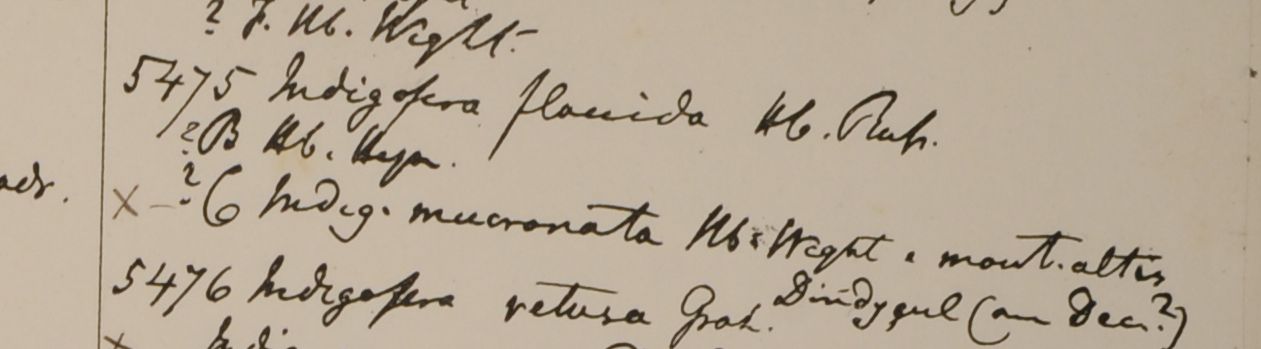 ? F. Hb. Wight.
5475 Indigofera flaccida Hb. Roxb.
? B Hb. Heyn.
adr.
X - ? C Indig. mucronata Hb. Wight e mont. altis
5476 Indigofera retusa Grah. Dindygul (an Dec.?)